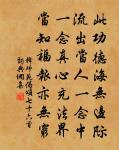 此功德海無邊際
流出當人一念中
一念真心充法界
當知福報亦無窮
釋師范偈頌七十六首
詞典網集